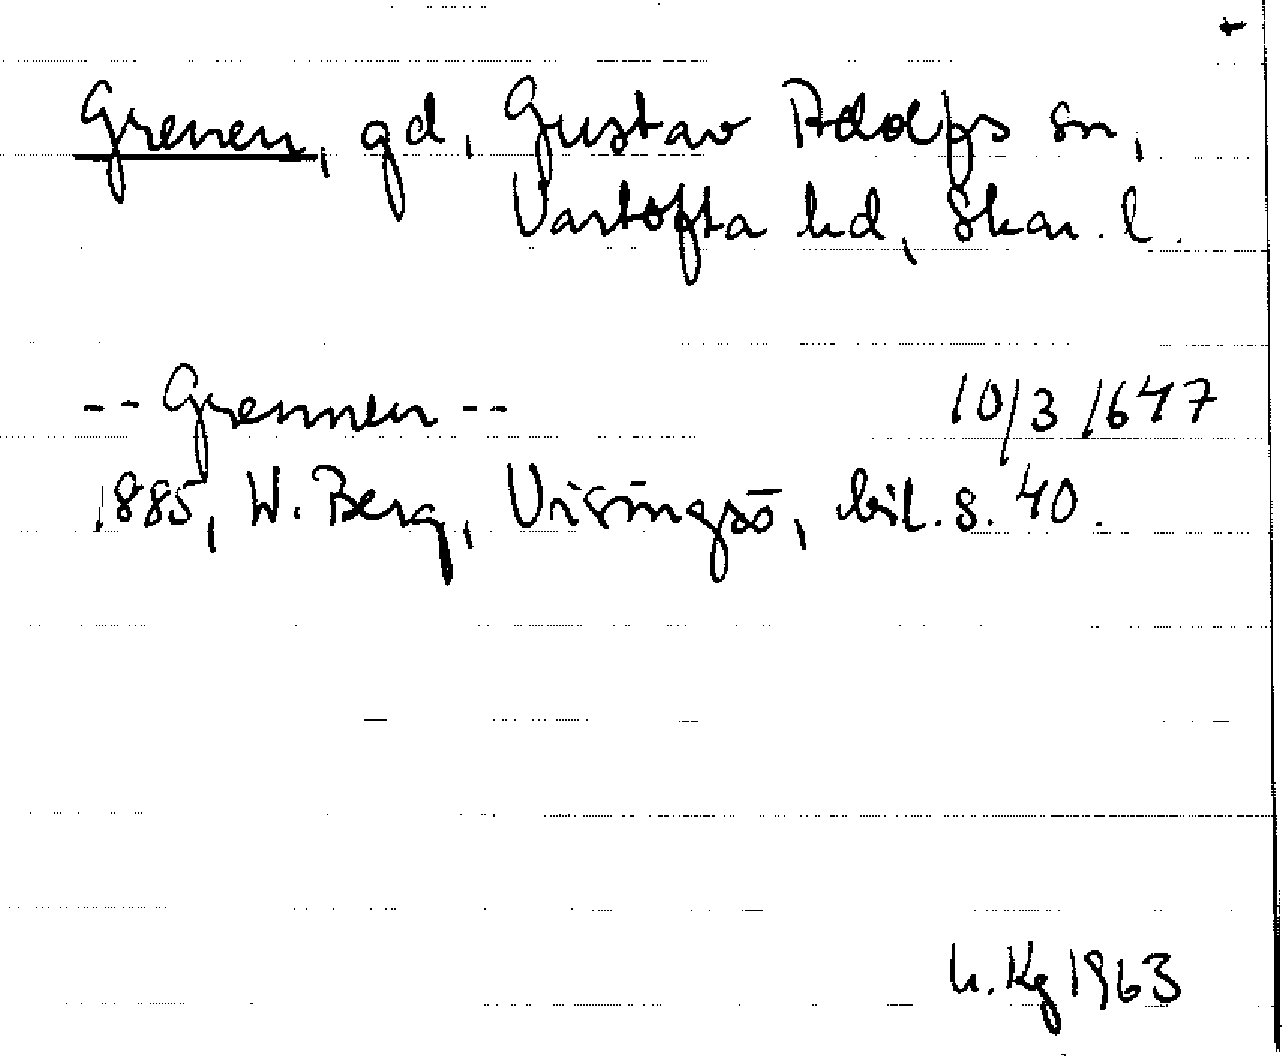 Grenen, gd, Gustav Adolfs sn,
Vartofta hd, Skar. l.
-- Grennen -- 10/3 1647
1885, W. Berg, Visingsö, bil. s. 40.
h. Kg 1963